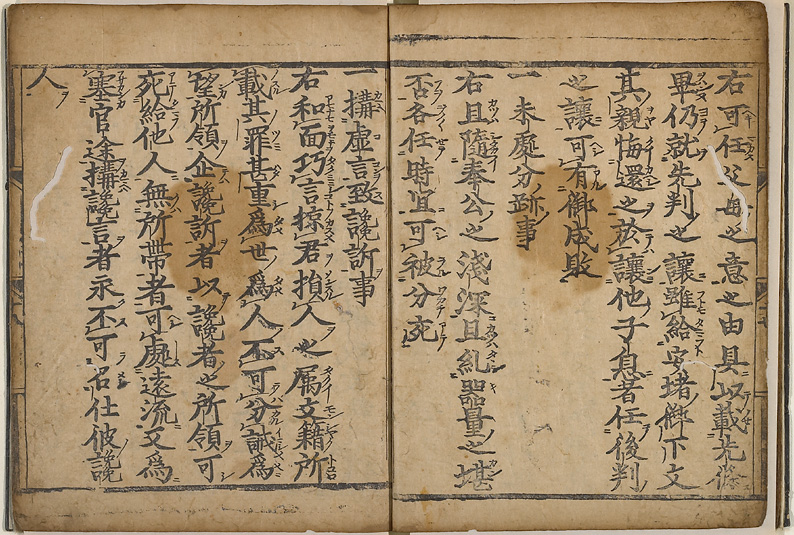 右可任父母之意之由具以載先條
畢仍就先判之讓雖給安堵御下文
其親悔還之於讓他子息者任後判
之讓可有御成敗
一 未處分跡事
右且隨奉公之淺深且糺器量之堪
否各任時宜可被分宛
一 搆虛言致讒訴事
右和面巧言掠君損人之属文籍所
載其罪甚重爲世爲人不可不誡爲
望所領企讒訴者以讒者之所領可
宛給他人無所帶者可處遠流又爲
塞官途搆讒言者永不可召仕彼讒
人